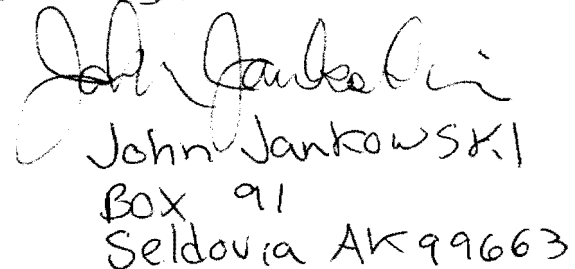 John Jankowski
John Jankowski
Box 91
Seldovia AK 99663